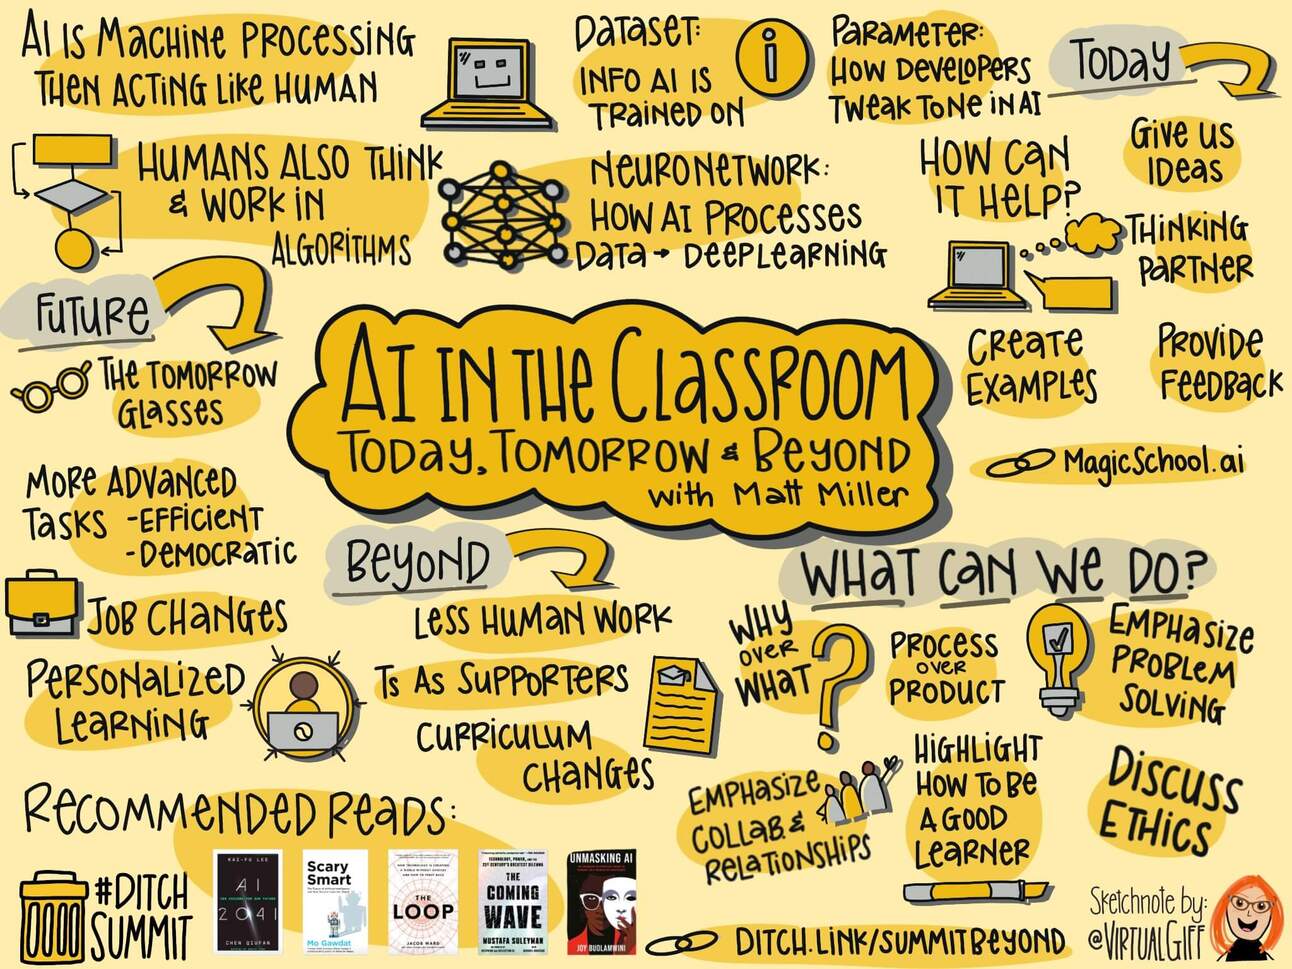 AI IS MACHINE PROCESSING
THEN ACTING LIKE HUMAN
HUMANS ALSO THINK
& WORK IN
ALGORITHMS
DATASET:
INFO AI IS
TRAINED ON
i
PARAMETER:
HOW DEVELOPERS
TWEAK TONE IN AI
NEURONETWORK:
HOW AI PROCESSES
DATA → DEEPLEARNING
TODAY
HOW CAN
IT HELP?
GIVE US
IDEAS
THINKING
PARTNER
CREATE
EXAMPLES
PROVIDE
FEEDBACK
MAGICSCHOOL.ai
AI IN THE CLASSROOM
TODAY, TOMORROW & BEYOND
with Matt Miller
FUTURE
THE TOMORROW
GLASSES
MORE ADVANCED
TASKS -EFFICIENT
-DEMOCRATIC
JOB CHANGES
PERSONALIZED
LEARNING
BEYOND
LESS HUMAN WORK
Ts AS SUPPORTERS
CURRICULUM
CHANGES
WHAT CAN WE DO?
WHY
OVER
WHAT
?
PROCESS
OVER
PRODUCT
EMPHASIZE
PROBLEM
SOLVING
EMPHASIZE
COLLAB &
RELATIONSHIPS
HIGHLIGHT
HOW TO BE
A GOOD
LEARNER
DISCUSS
ETHICS
RECOMMENDED READS:
KAI-FU LEE
AI
2041
CHEN QIUFAN
Scary
Smart
Mo Gawdat
THE
LOOP
JACOB WARD
THE
COMING
WAVE
MUSTAFA SULEYMAN
UNMASKING AI
JOY BUOLAMWINI
#DITCH
SUMMIT
DITCH.LINK/SUMMITBEYOND
Sketchnote by:
@VIRTUALGIFF